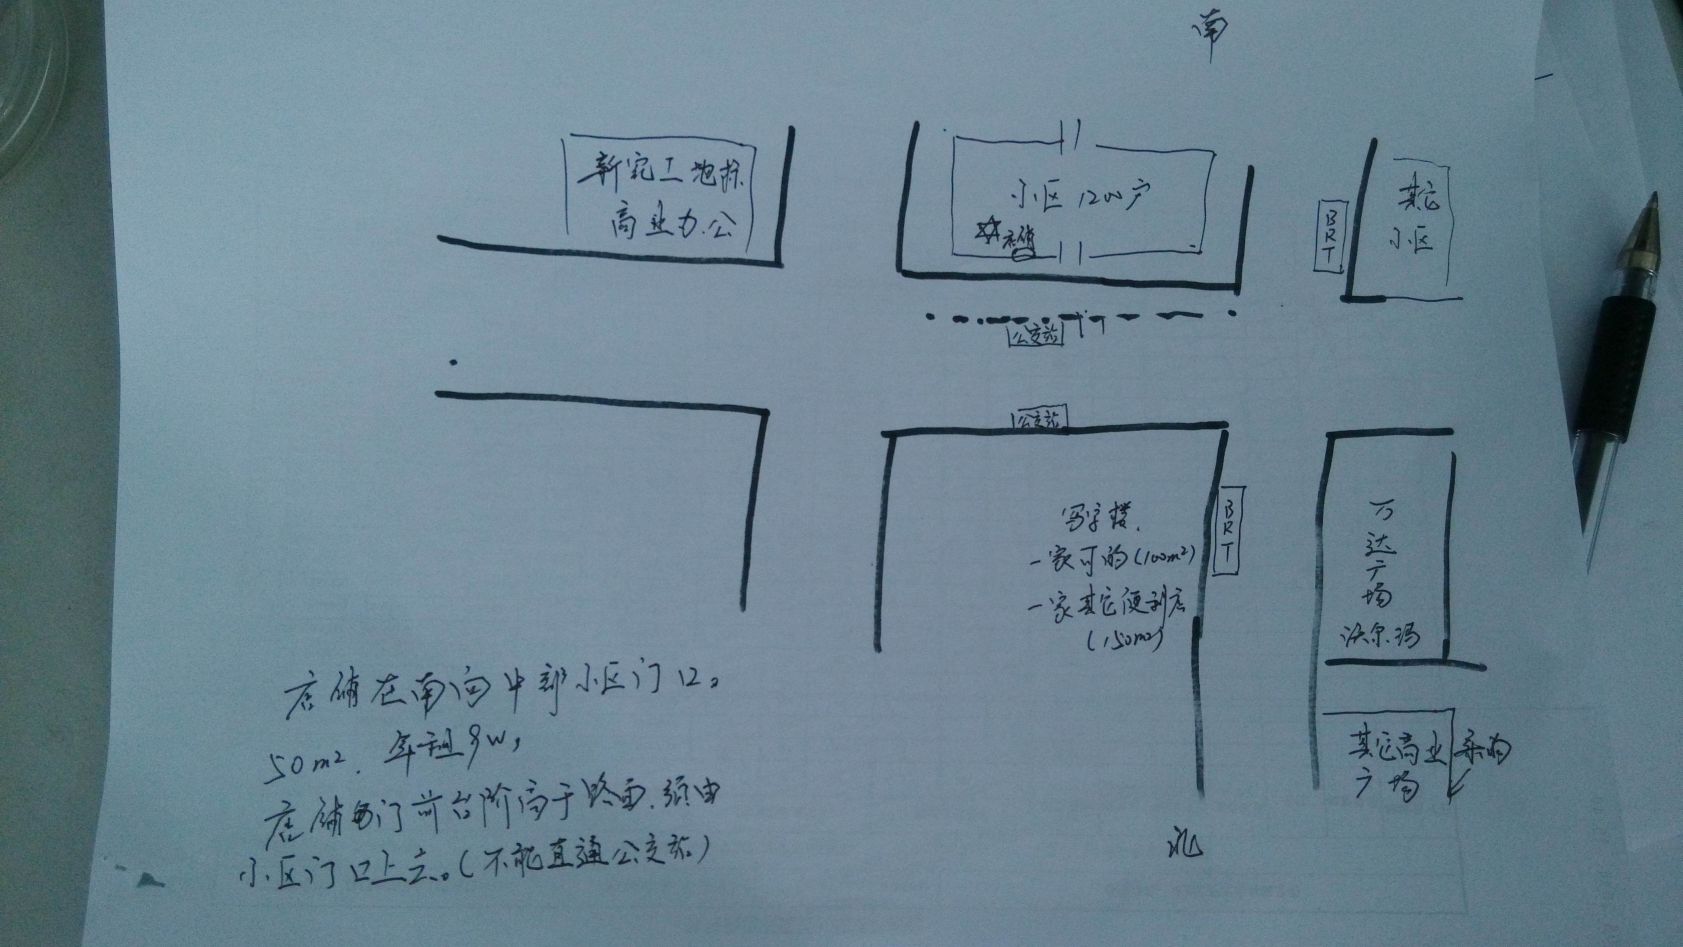 南
新完工地标
商业办公
小区 1200户
店铺
BRT
其它
小区
公交站
公交站
写字楼.
一家可的(100m²)
一家其它便利店
(150m²)
BRT
万达广场
沃尔玛
其它商业
广场
北
店铺在南向中部小区门口。
50m². 年租9W,
店铺门前台阶高于路面.须由
小区门口上去。(不能直通公交站)